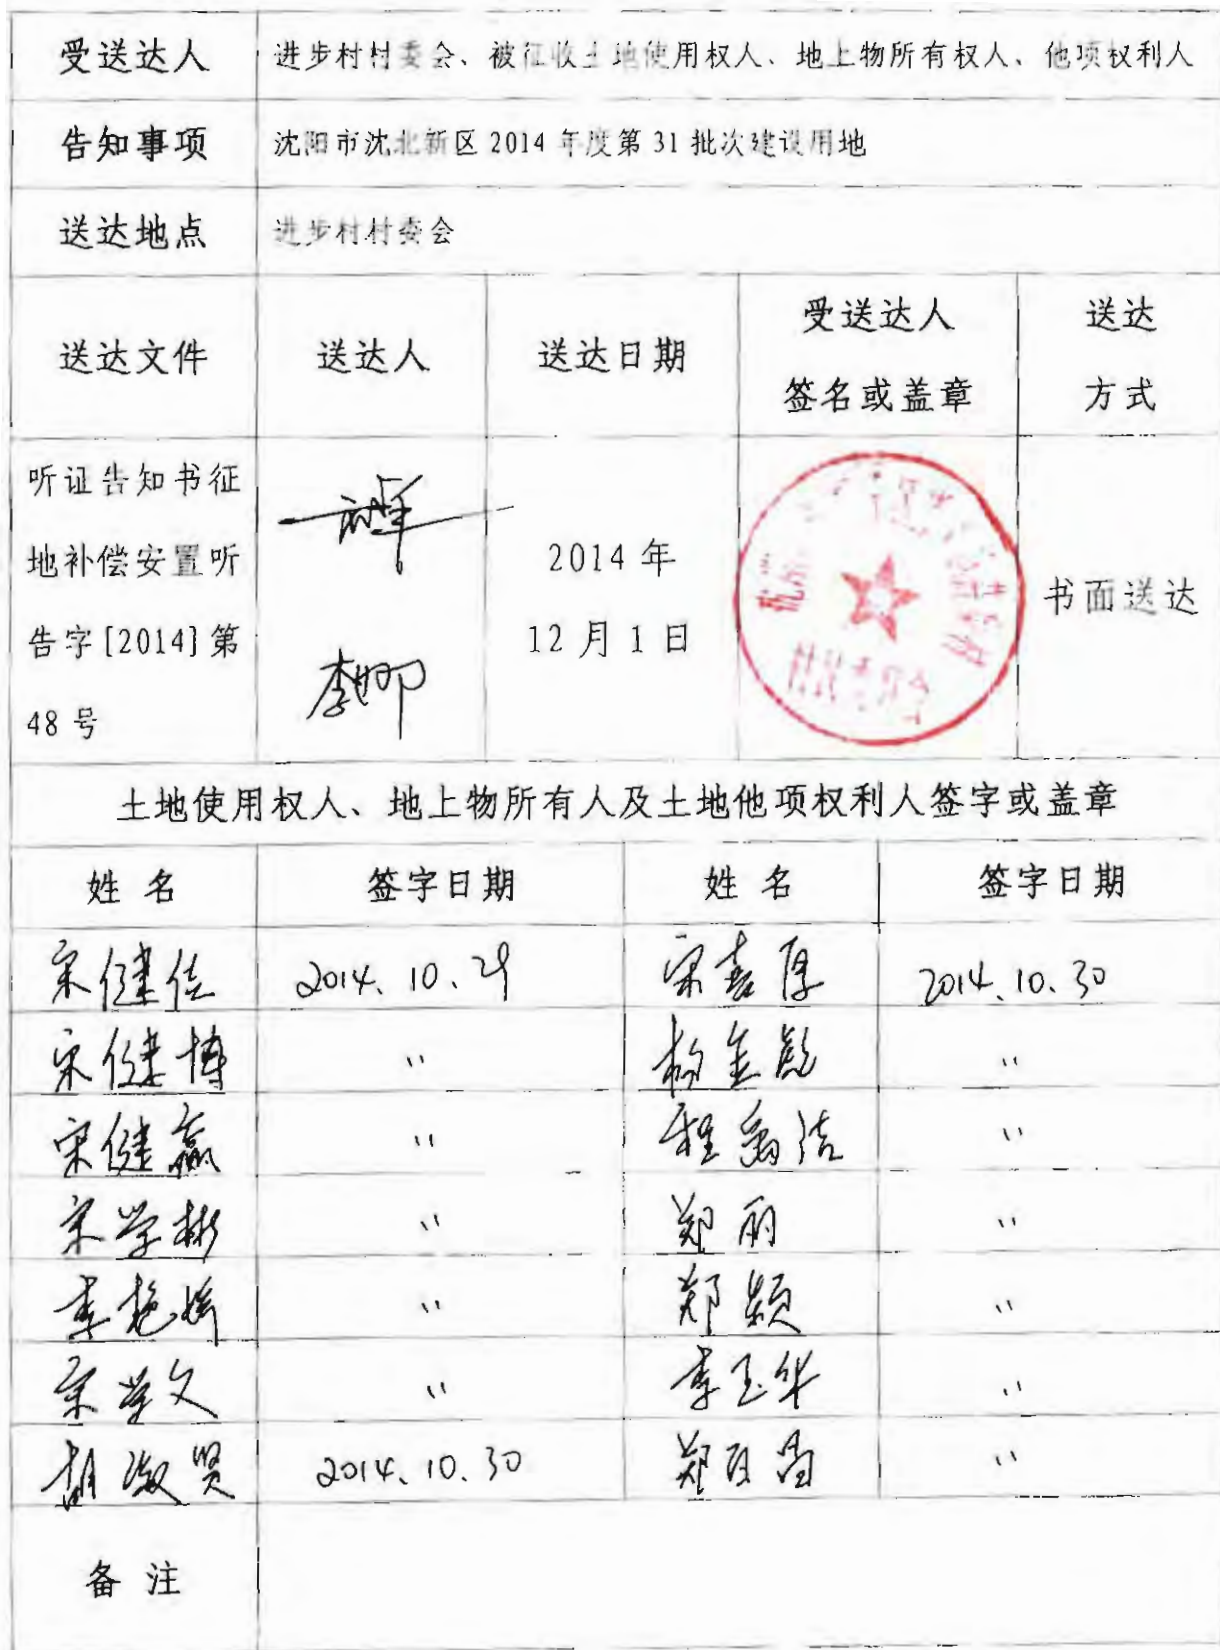 受送达人 进步村村委会、被征收土地使用权人、地上物所有权人、他项权利人
告知事项 沈阳市沈北新区 2014 年度第 31 批次建设用地
送达地点 进步村村委会
送达文件 送达人 送达日期 受送达人 签名或盖章 送达 方式
听证告知书征
地补偿安置听
告字[2014]第
48 号
李娜
2014 年
12 月 1 日
村民委员会
书面送达
土地使用权人、地上物所有人及土地他项权利人签字或盖章
姓 名 签字日期 姓 名 签字日期
宋健佳 2014.10.29 宋喜厚 2014.10.30
宋健博 〃 杨金彪 〃
宋健赢 〃 程禹洁 〃
宋学彬 〃 郑丽 〃
李艳娇 〃 郑颖 〃
宋学文 〃 李玉华 〃
胡淑贤 2014.10.30 郑百昌 〃
备 注